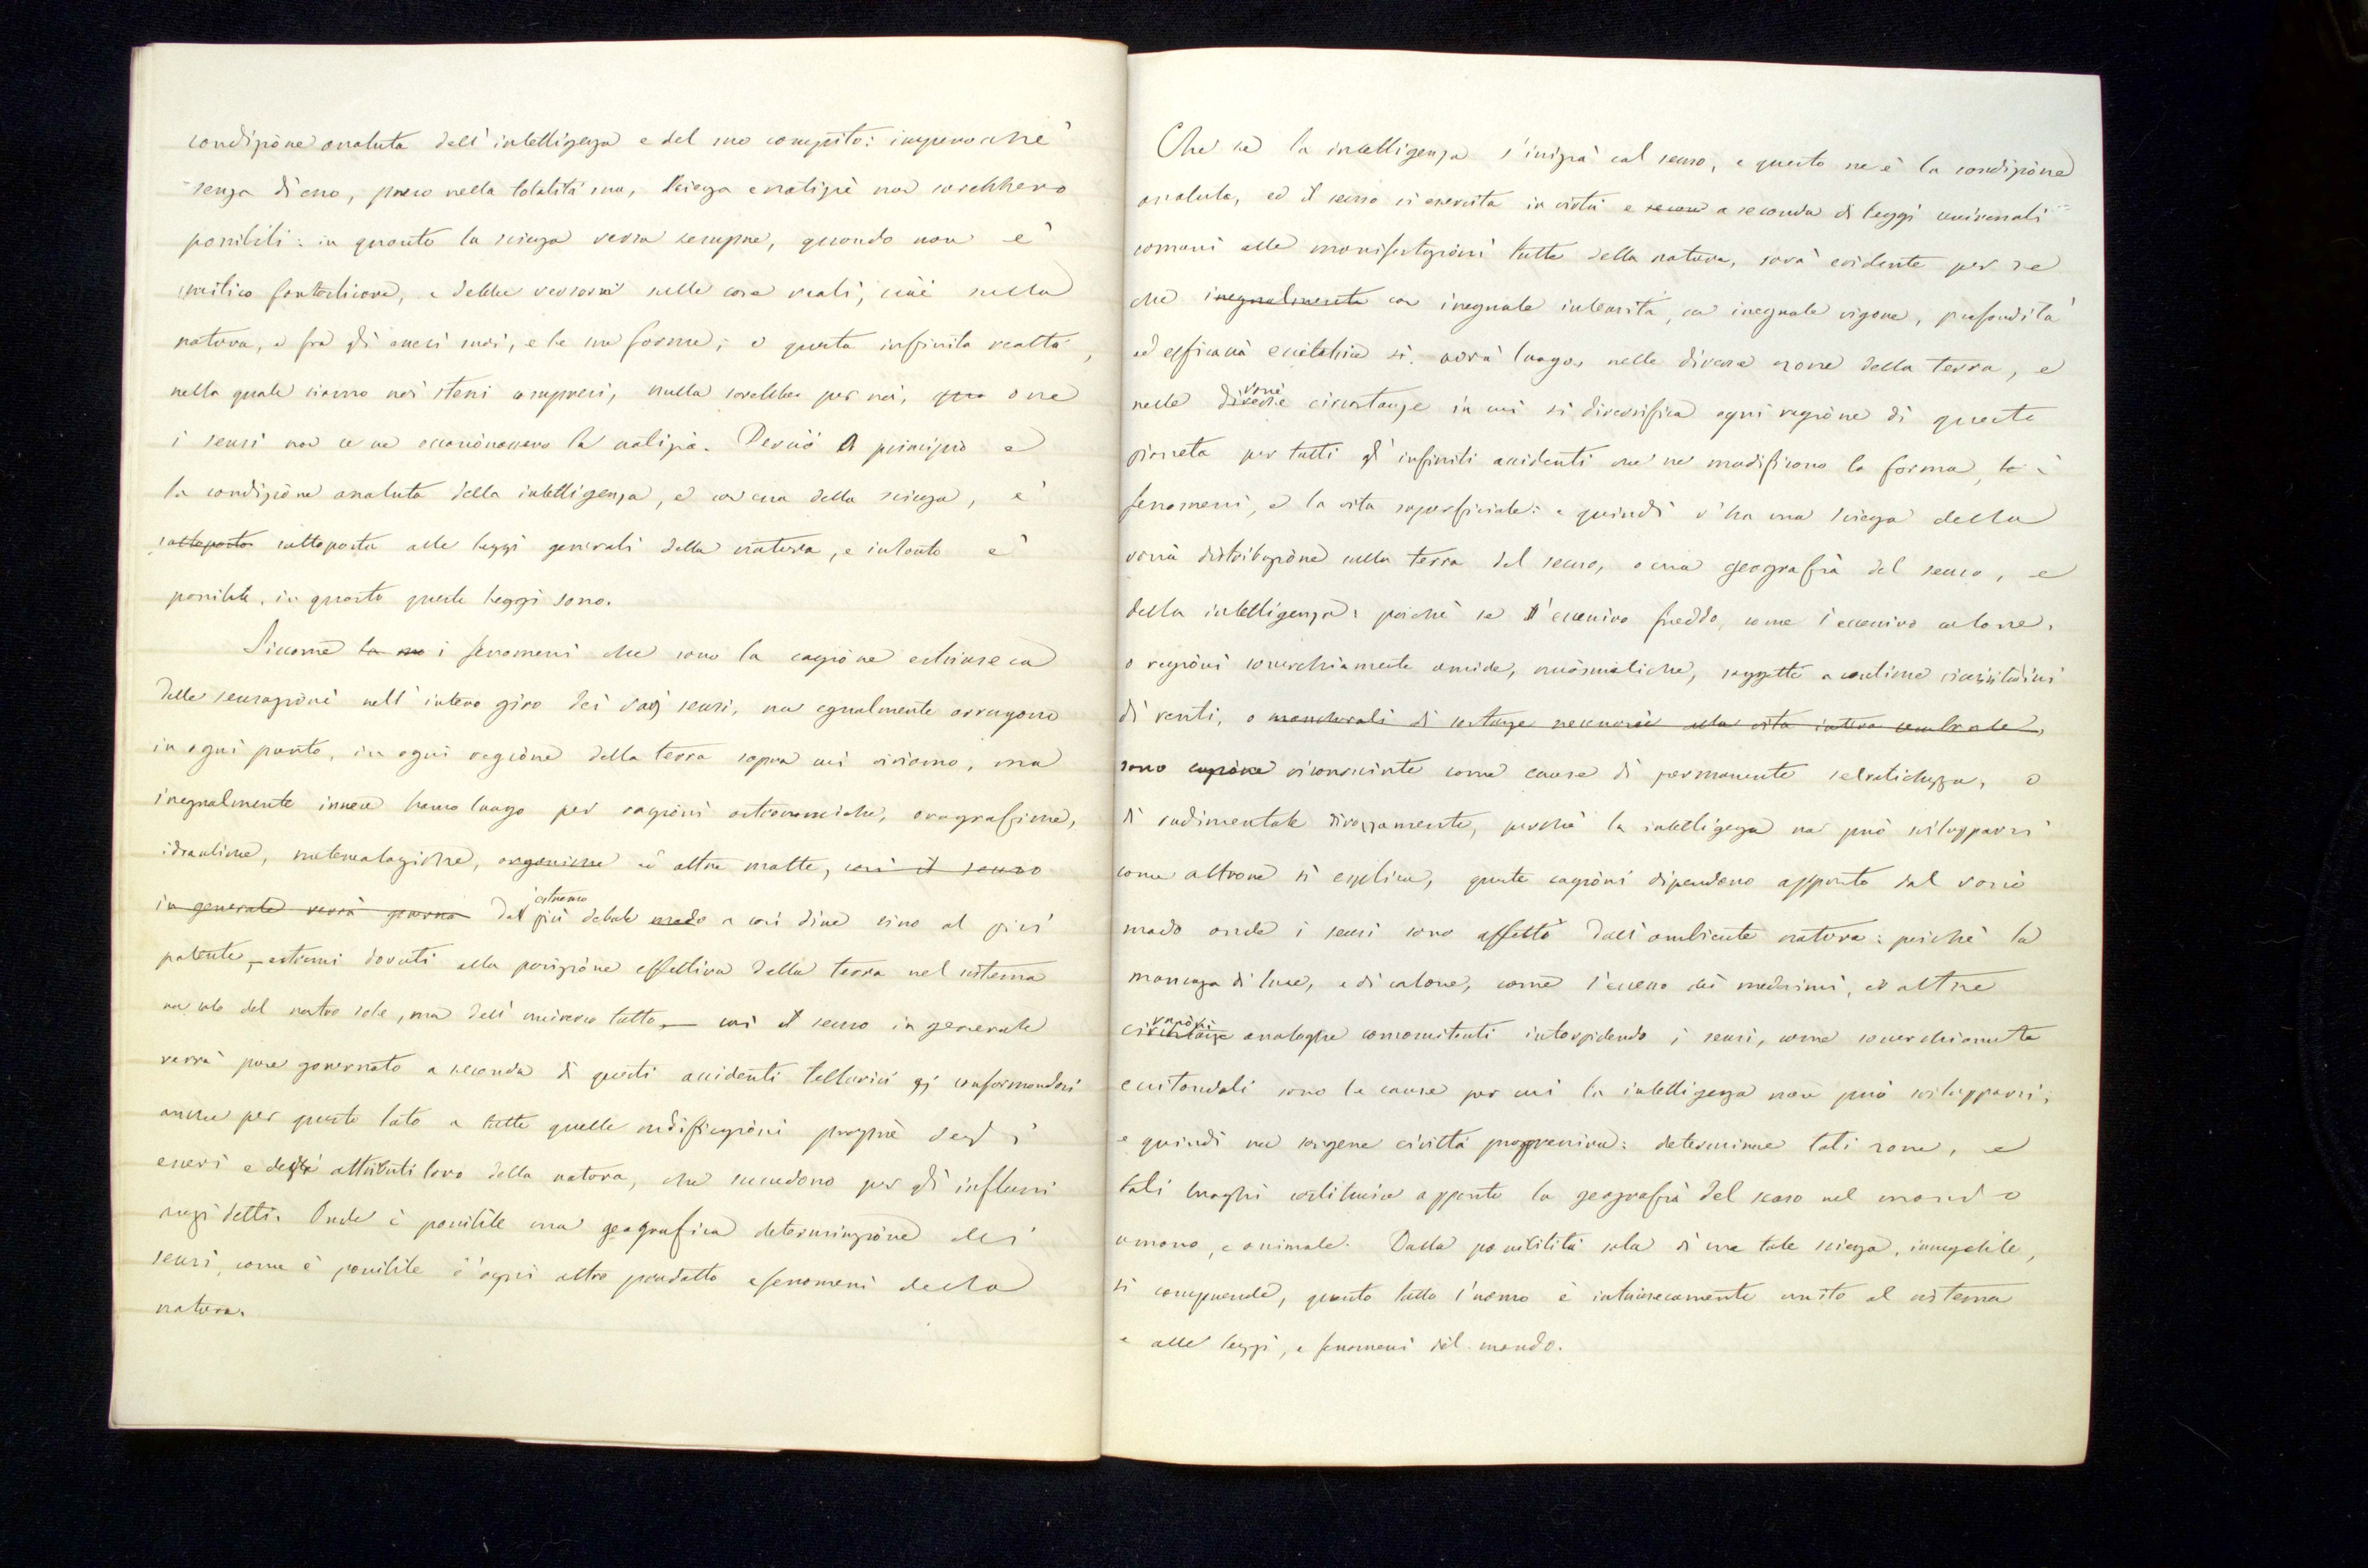 condizione assoluta dell'intelligenza e del suo compito: imperocchè
senza di esso, preso nella totalità sua, scienza e notizie non sarebbero
possibili: in quanto la scienza versa sempre, quando non è
mitico fantasticare, e debbe versarsi nelle cose reali, cioè nella
natura, e fra gli esseri suoi, e le sue forme; e questa infinita realtà,
nella quale siamo noi stessi compresi, nulla sarebbe per noi, ove
i sensi non ce ne cagionassero la notizia. Perciò il principio e
la condizione assoluta della intelligenza, e con essa della scienza, è
sottoposto sottoposta alle leggi generali della natura, e intanto è
possibile, in quanto queste leggi sono.
Siccome i fenomeni che sono la cagione estrinseca
delle sensazioni nell'intero giro dei varj sensi, non egualmente avvengono
in ogni punto, in ogni regione della terra sopra cui viviamo, ma
inegualmente invece hanno luogo per ragioni astronomiche, orografiche,
idrauliche, meteorologiche, organiche ed altre molte, così il senso
in generale verrà governa dal più estremo debole modo a così dire sino al più
potente, – estremi dovuti alla posizione effettiva della terra nel sistema
non solo del nostro sole, ma dell'universo tutto, – così il senso in generale
verrà pure governato a seconda di questi accidenti tellurici conformandosi
anche per questo lato a tutte quelle modificazioni proprie degli
esseri e degli attributi loro della natura, che succedono per gli influssi
suoi detti. Onde è possibile una geografica determinazione dei
sensi, come è possibile d'ogni altro prodotto e fenomeni della
natura.
Che se la intelligenza s'inizia col senso, e questo ne è la condizione
assoluta, ed il senso si esercita in virtù e secon a seconda di leggi universali
comuni alle manifestazioni tutte della natura, sarà evidente per se
che inegualmente con ineguale intensità, con ineguale vigore, profondità
ed efficacia eccitatrice si avrà luogo, nelle diverse zone della terra, e
nelle diverse varie circostanze in cui si diversifica ogni regione di questo
pianeta per tutti gl'infiniti accidenti che ne modificano la forma, i
fenomeni, e la vita superficiale: e quindi v'ha una scienza della
varia distribuzione sulla terra del senso, o una geografia del senso, e
della intelligenza: poichè se l'eccessivo freddo, come l'eccessivo calore,
o regioni soverchiamente umide, miasmatiche, soggette a continue vicissitudini
di venti, o mancherali di sostanze necessarie alla vita intera cerebrale,
sono cagione riconosciute come cause di permanente selvatichezza, o
di rudimentale dirozzamento, perchè la intelligenza non può svilupparsi
come altrove si esplica, queste cagioni dipendono appunto dal vario
modo onde i sensi sono affetti dall'ambiente natura: poichè la
mancanza di luce, e di calore, come l'eccesso dei medesimi, ed altre
circostanze cagioni analoghe concomitanti intorpidendo i sensi, come soverchiamente
eccitandoli sono le cause per cui la intelligenza non può svilupparsi;
e quindi non sorgere civiltà progressiva: determinare tali zone, e
tali luoghi costituisce appunto la geografia del senso nel mondo
umano, e animale. Dalla possibilità sola di una tale scienza, innegabile,
si comprende, quanto tutto l'uomo è intrinsecamente unito al sistema
e alle leggi, e fenomeni del mondo.